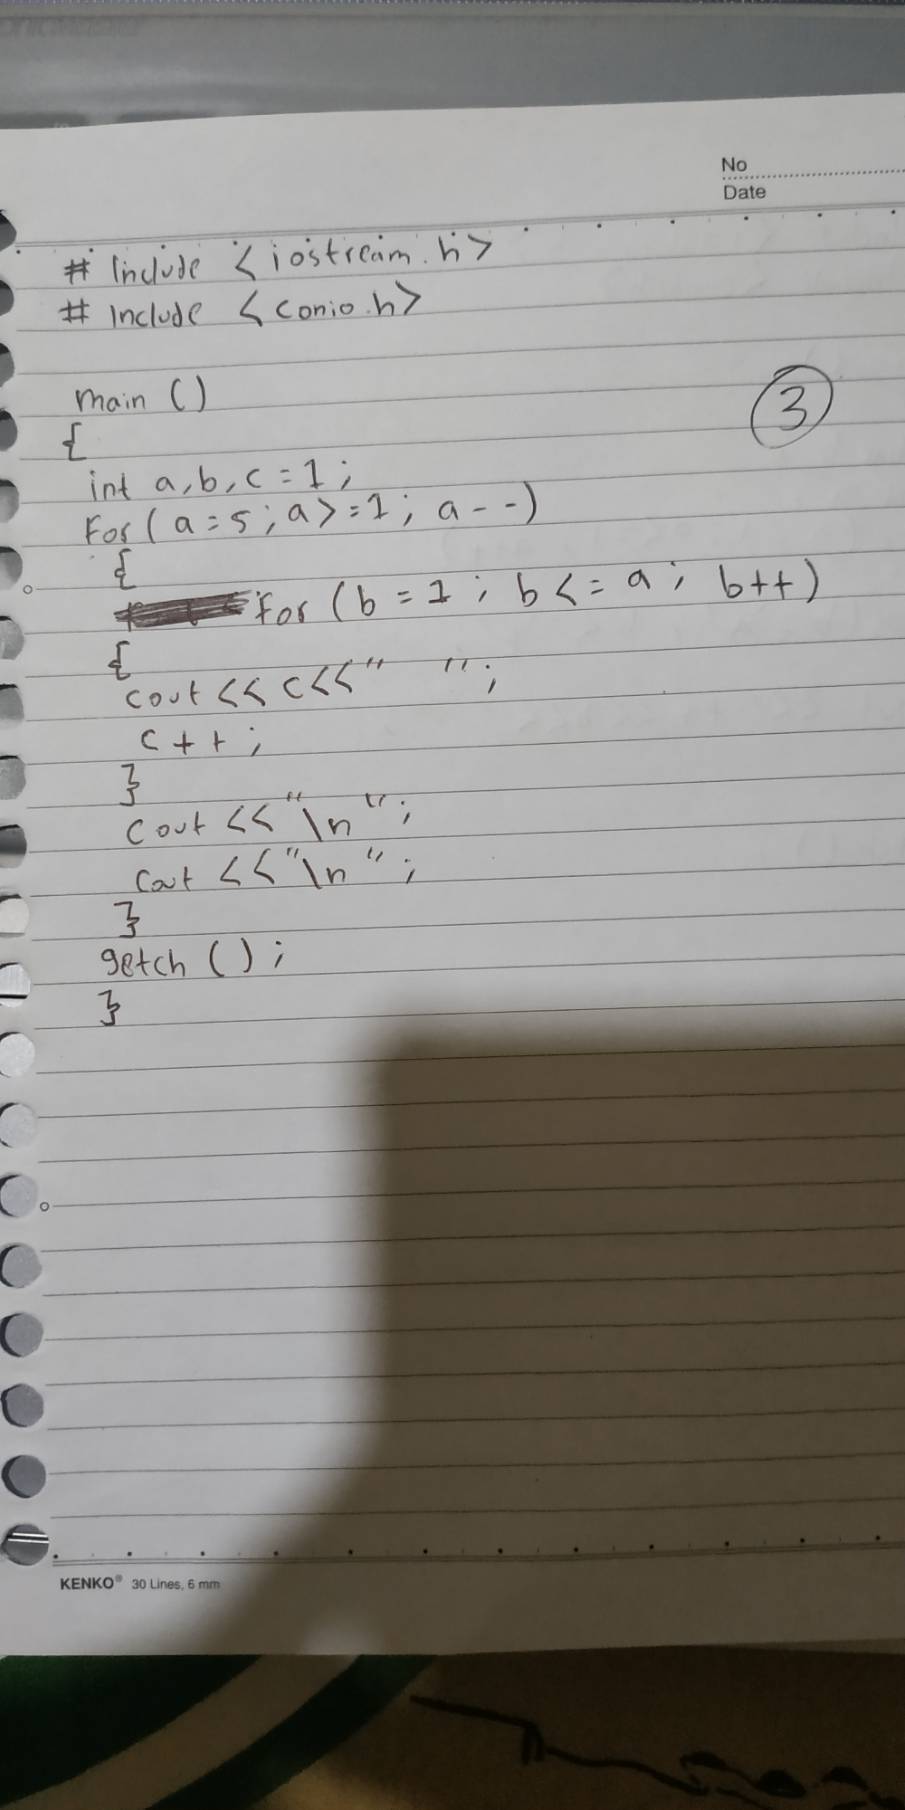 No
Date
# Include <iostream.h>
# Include <conio.h>
main ()
3
{
int a,b,c=1;
For(a=5;a>=1; a--)
{
for (b=1; b<=a; b++)
{
cout << c<<" ";
c++;
}
cout <<"\n";
cout <<"\n";
}
getch ();
}
KENKO® 30 Lines, 6 mm